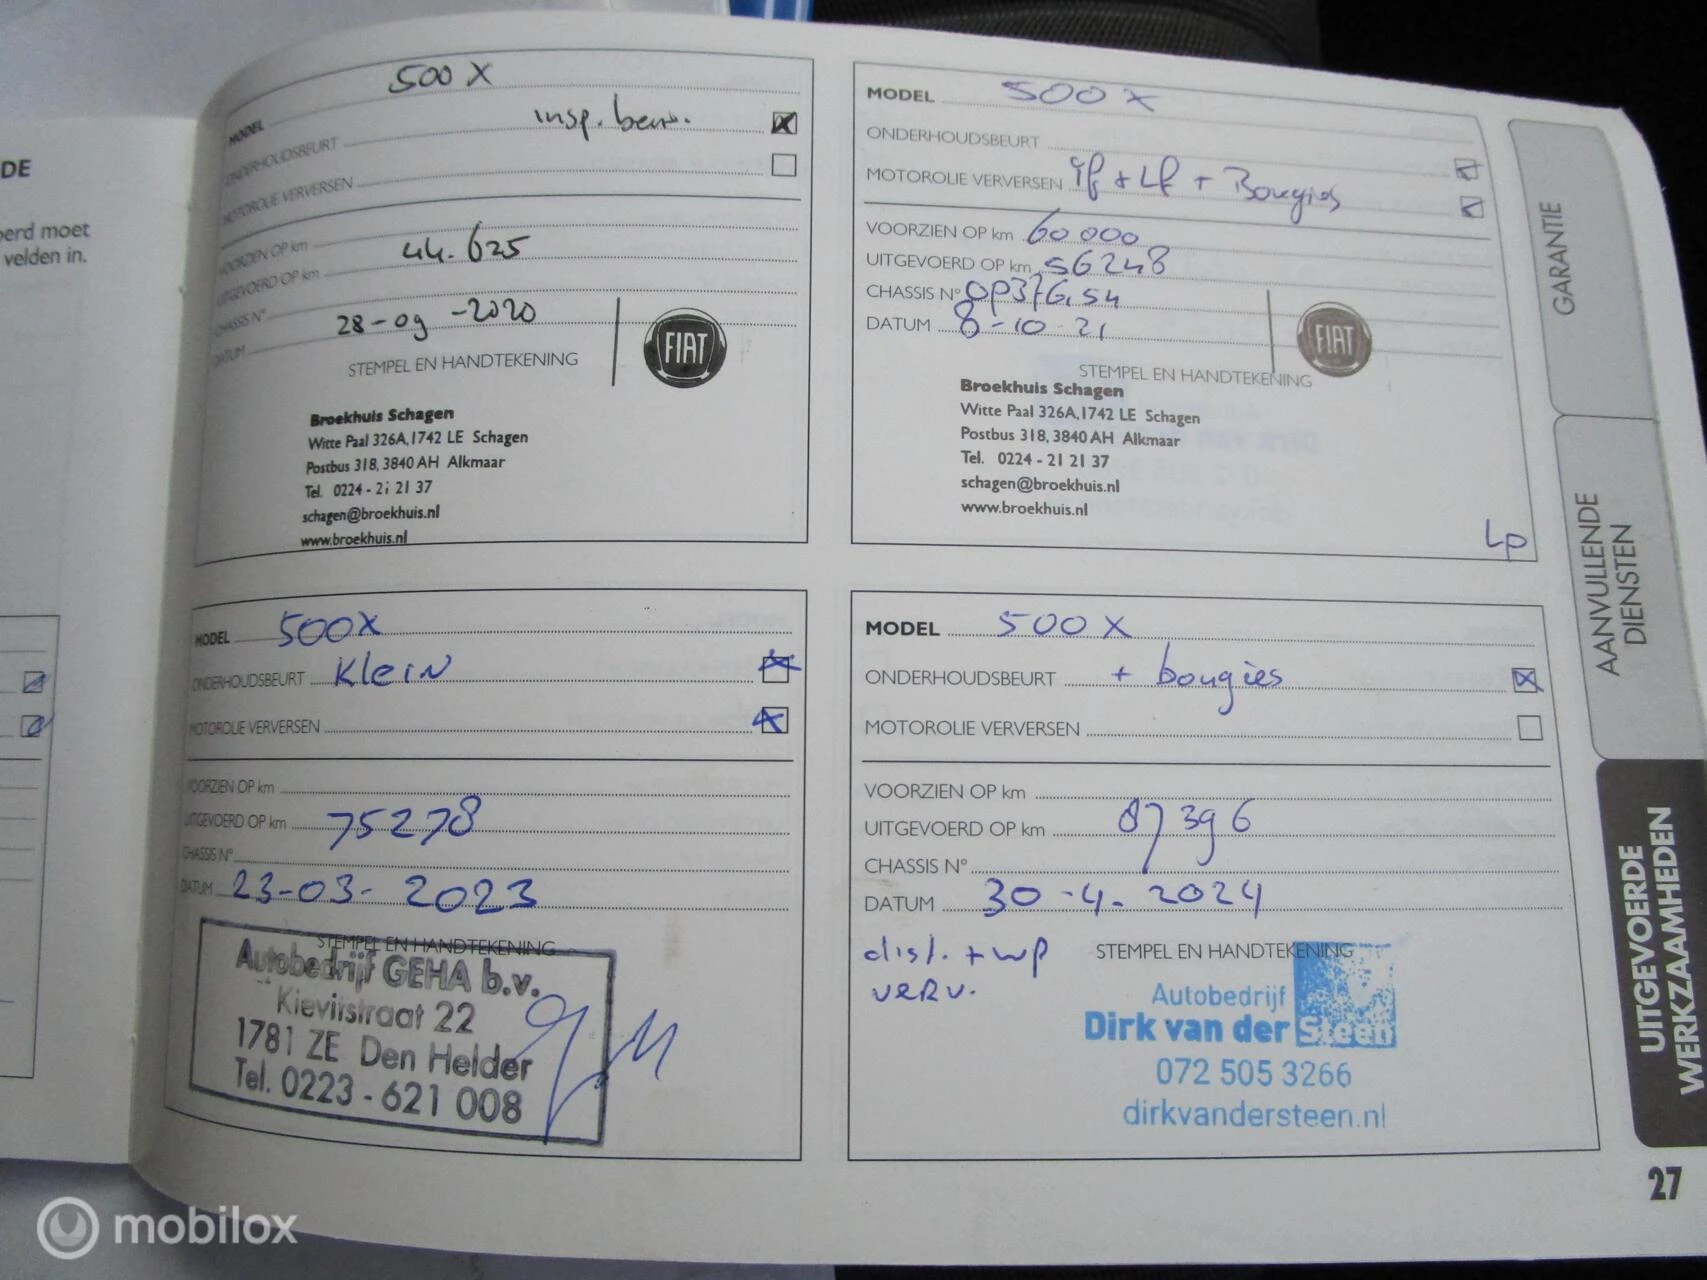 DE
oerd moet
velden in.
MODEL 500 X
ONDERHOUDSBEURT insp. beurt.
MOTOROLIE VERVERSEN
VOORZIEN OP km
UITGEVOERD OP km 44.625
CHASSIS N°
DATUM 28-09-2020
STEMPEL EN HANDTEKENING
FIAT
Broekhuis Schagen
Witte Paal 326A, 1742 LE Schagen
Postbus 318, 3840 AH Alkmaar
Tel. 0224 - 21 21 37
schagen@broekhuis.nl
www.broekhuis.nl
MODEL 500 X
ONDERHOUDSBEURT
MOTOROLIE VERVERSEN if + Lf + Bougies
VOORZIEN OP km 60 000
UITGEVOERD OP km 56248
CHASSIS N° 0P376,54
DATUM 8-10-21
STEMPEL EN HANDTEKENING
FIAT
Broekhuis Schagen
Witte Paal 326A, 1742 LE Schagen
Postbus 318, 3840 AH Alkmaar
Tel. 0224 - 21 21 37
schagen@broekhuis.nl
www.broekhuis.nl
Lp
MODEL 500X
ONDERHOUDSBEURT Klein
MOTOROLIE VERVERSEN
VOORZIEN OP km
UITGEVOERD OP km 75278
CHASSIS N°
DATUM 23-03-2023
STEMPEL EN HANDTEKENING
Autobedrijf GEHA b.v.
Kievitstraat 22
1781 ZE Den Helder
Tel. 0223 - 621 008
MODEL 500 X
ONDERHOUDSBEURT + bougies
MOTOROLIE VERVERSEN
VOORZIEN OP km
UITGEVOERD OP km 87396
CHASSIS N°
DATUM 30-4-2024
dist. + wp
verv.
STEMPEL EN HANDTEKENING
Autobedrijf
Dirk van der Steen
072 505 3266
dirkvandersteen.nl
GARANTIE
AANVULLENDE
DIENSTEN
UITGEVOERDE
WERKZAAMHEDEN
27
mobilox